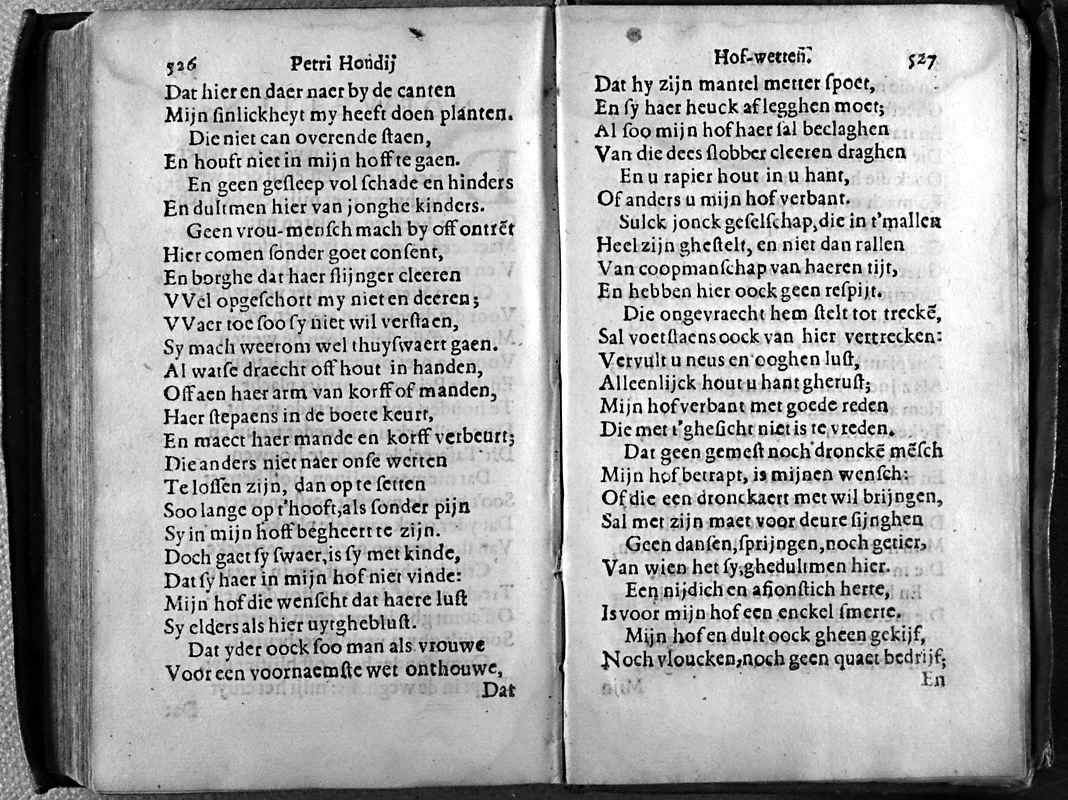 526 Petri Hondij
Dat hier en daer naer by de canten
Mijn ſinlickheyt my heeft doen planten.
Die niet can overende ſtaen,
En houft niet in mijn hoff te gaen.
En geen geſleep vol ſchade en hinders
En dultmen hier van jonghe kinders.
Geen vrou-menſch mach by off ontrēt
Hier comen ſonder goet conſent,
En borghe dat haer ſlijnger cleeren
VVel opgeſchort my niet en deeren;
VVaer toe ſoo ſy niet wil verſtaen,
Sy mach weerom wel thuyſwaert gaen.
Al watſe draecht off hout in handen,
Off aen haer arm van korff of manden,
Haer ſtepaens in de boete keurt,
En maect haer mande en korff verbeurt;
Die anders niet naer onſe wetten
Te loſſen zijn, dan op te ſetten
Soo lange op t'hooft, als ſonder pijn
Sy in mijn hoff begheert te zijn.
Doch gaet ſy ſwaer, is ſy met kinde,
Dat ſy haer in mijn hof niet vinde:
Mijn hof die wenſcht dat haere luſt
Sy elders als hier uytghebluſt.
Dat yder oock ſoo man als vrouwe
Voor een voornaemſte wet onthouwe,
Dat
Hof-wettēn. 527
Dat hy zijn mantel metter ſpoet,
En ſy haer heuck af legghen moet;
Al ſoo mijn hof haer ſal beclaghen
Van die dees ſlobber cleeren draghen
En u rapier hout in u hant,
Of anders u mijn hof verbant.
Sulck jonck geſelſchap, die in t'mallen
Heel zijn gheſtelt, en niet dan rallen
Van coopmanſchap van haeren tijt,
En hebben hier oock geen reſpijt.
Die ongevraecht hem ſtelt tot treckē,
Sal voetſtaens oock van hier vertrecken:
Vervult u neus en ooghen luſt,
Alleenlijck hout u hant gheruſt;
Mijn hof verbant met goede reden
Die met t'gheſicht niet is te vreden.
Dat geen gemeſt noch dronckē mēſch
Mijn hof betrapt, is mijnen wenſch:
Of die een dronckaert met wil brijngen,
Sal met zijn maet voor deure ſijnghen
Geen danſen, ſprijngen, noch getier,
Van wien het ſy, ghedultmen hier.
Een nijdich en afjonſtich herte,
Is voor mijn hof een enckel ſmerte.
Mijn hof en dult oock gheen gekijf,
Noch vloucken, noch geen quaet bedrijf;
En